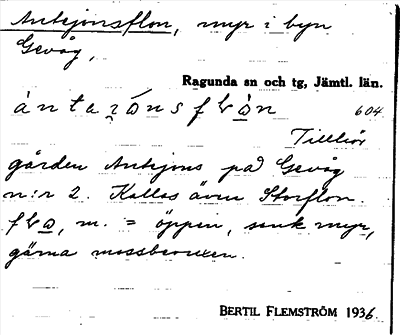 Antejonsflon, myr i byn
Gevåg,
Ragunda sn och tg, Jämtl. län.
604
Tillhör
gården Antejons på Gevåg
n:r 2. Kallas även Storflon.
m. = öppen, sank myr,
gärna mossbevuxen.
BERTIL FLEMSTRÖM 1936.